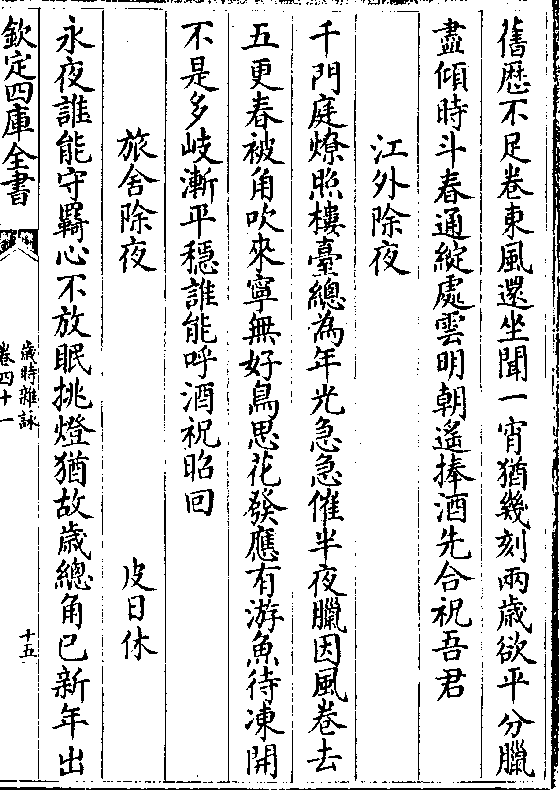 舊歴不足卷東風還坐聞一宵猶幾刻兩歳欲平分臘
盡傾時斗春通綻處雲明朝遙捧酒先合祝吾君
江外除夜
千門庭燎照樓臺總為年光急急催半夜臘因風卷去
五更春被角吹來寧無好鳥思花發應有游魚待凍開
不是多岐漸平穩誰能呼酒祝昭回
旅舍除夜 皮日休
永夜誰能守羇心不放眠挑燈猶故歳總角已新年出
欽定四庫全書
歳時雜詠
卷四十一
十五